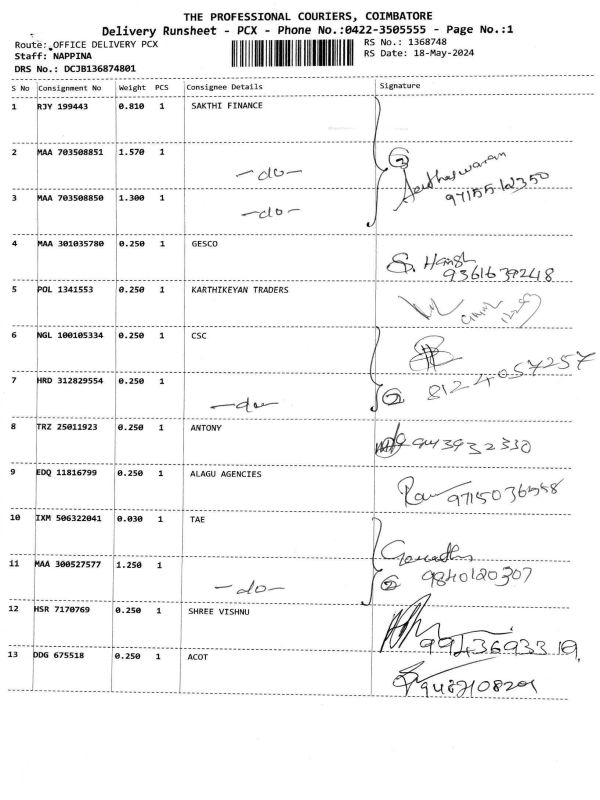 THE PROFESSIONAL COURIERS, COIMBATORE
Delivery Runsheet - PCX - Phone No.:0422-3505555 - Page No.:1
Route: OFFICE DELIVERY PCX
RS No.: 1368748
Staff: NAPPINA
RS Date: 18-May-2024
DRS No.: DCJB136874801
S No Consignment No Weight PCS Consignee Details Signature
1 RJY 199443 0.810 1 SAKTHI FINANCE
2 MAA 703508851 1.570 1 -do-
3 MAA 703508850 1.300 1 -do-
4 MAA 301035780 0.250 1 GESCO 9361639248
5 POL 1341553 0.250 1 KARTHIKEYAN TRADERS
6 NGL 100105334 0.250 1 CSC 8124057257
7 HRD 312829554 0.250 1 -do- 2
8 TRZ 25011923 0.250 1 ANTONY 9443932330
9 EDQ 11816799 0.250 1 ALAGU AGENCIES
10 IXM 506322041 0.030 1 TAE
11 MAA 300527577 1.250 1 -do- 2 9840120307
12 HSR 7170769 0.250 1 SHREE VISHNU 9943693319
13 DDG 675518 0.250 1 ACOT